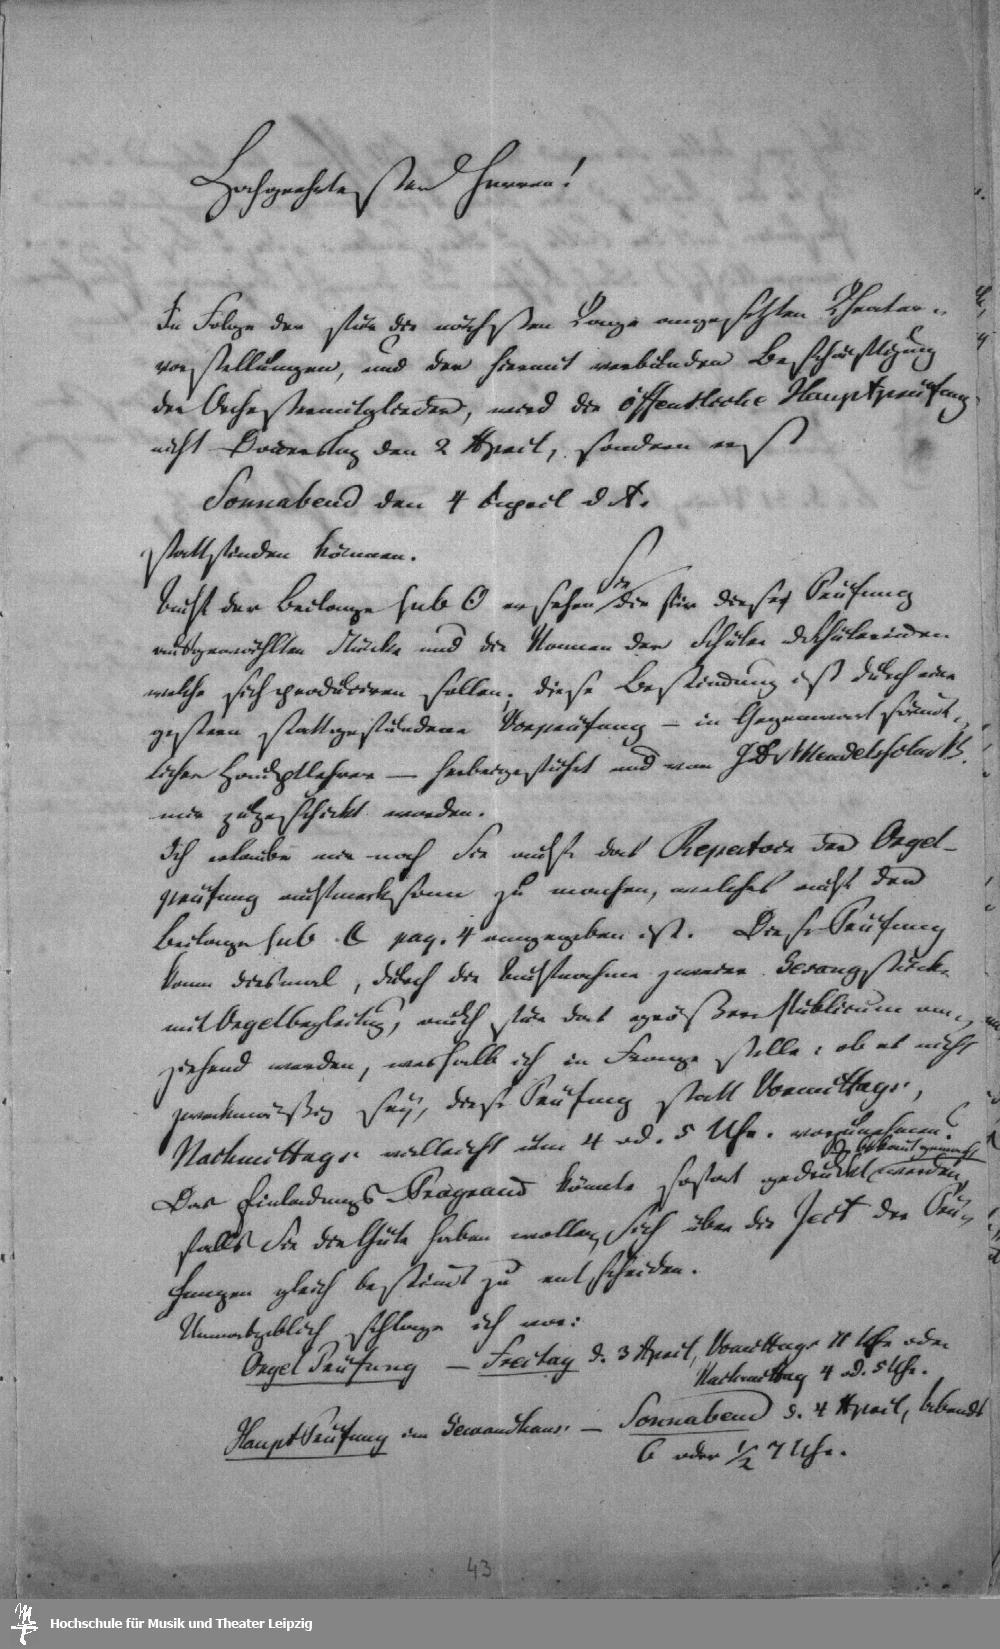 Hochgeehrtesten Herren!
In Folge der für die nächsten Tage angesetzten Theater=
vorstellungen, und der hiermit verbundnen Beschäftigung
der Orchestermitglieder, wird die öffentliche Hauptprüfung
nicht Donnerstag den 2 April, sondern erst
Sonnabend den 4 April d. J.
stattfinden können.
Aus der Beilage sub O ersehen Sie die für diese Prüfung
ausgewählten Stücke und die Namen der Schüler u Schülerinnen
welche sich produciren sollen; diese Bestimmung ist durch eine
gestern stattgefundene Vorprüfung — in Gegenwart sämt=
licher Hauptlehrer — herbeigeführt und von H Dr Mendelssohn B.
mir zugeschickt worden.
Ich erlaube mir noch Sie auf das Repertoir der Orgel-
prüfung aufmerksam zu machen, welches auf der
Beilage sub pag. 4 angegeben ist. Diese Prüfung
kann diesmal, durch die Aufnahme zweier Gesangstücke
mit Orgelbegleitung, auch für das größere Publicum an=
ziehend werden, weshalb ich in Frage stelle: ob es nicht
zweckmäßig sey, diese Prüfung statt Vormittags,
Nachmittags vielleicht um 4 od. 5 Uhr. vorzunehmen?
Das Einladungs Programm könnte sofort gedruckt u bekannt gemacht werden,
falls Sie die Güte haben wollen, sich über die Zeit der Prü=
fungen gleich bestimmt zu entscheiden.
Unmaßgeblich schlage ich vor:
Orgel Prüfung — Freitag d. 3 April, Vormittags 11 Uhr oder
Nachmittag 4 od. 5 Uhr.
Haupt Prüfung im Gewandhaus — Sonnabend d. 4 April, Abends
6 oder 1/2 7 Uhr.
43
Hochschule für Musik und Theater Leipzig